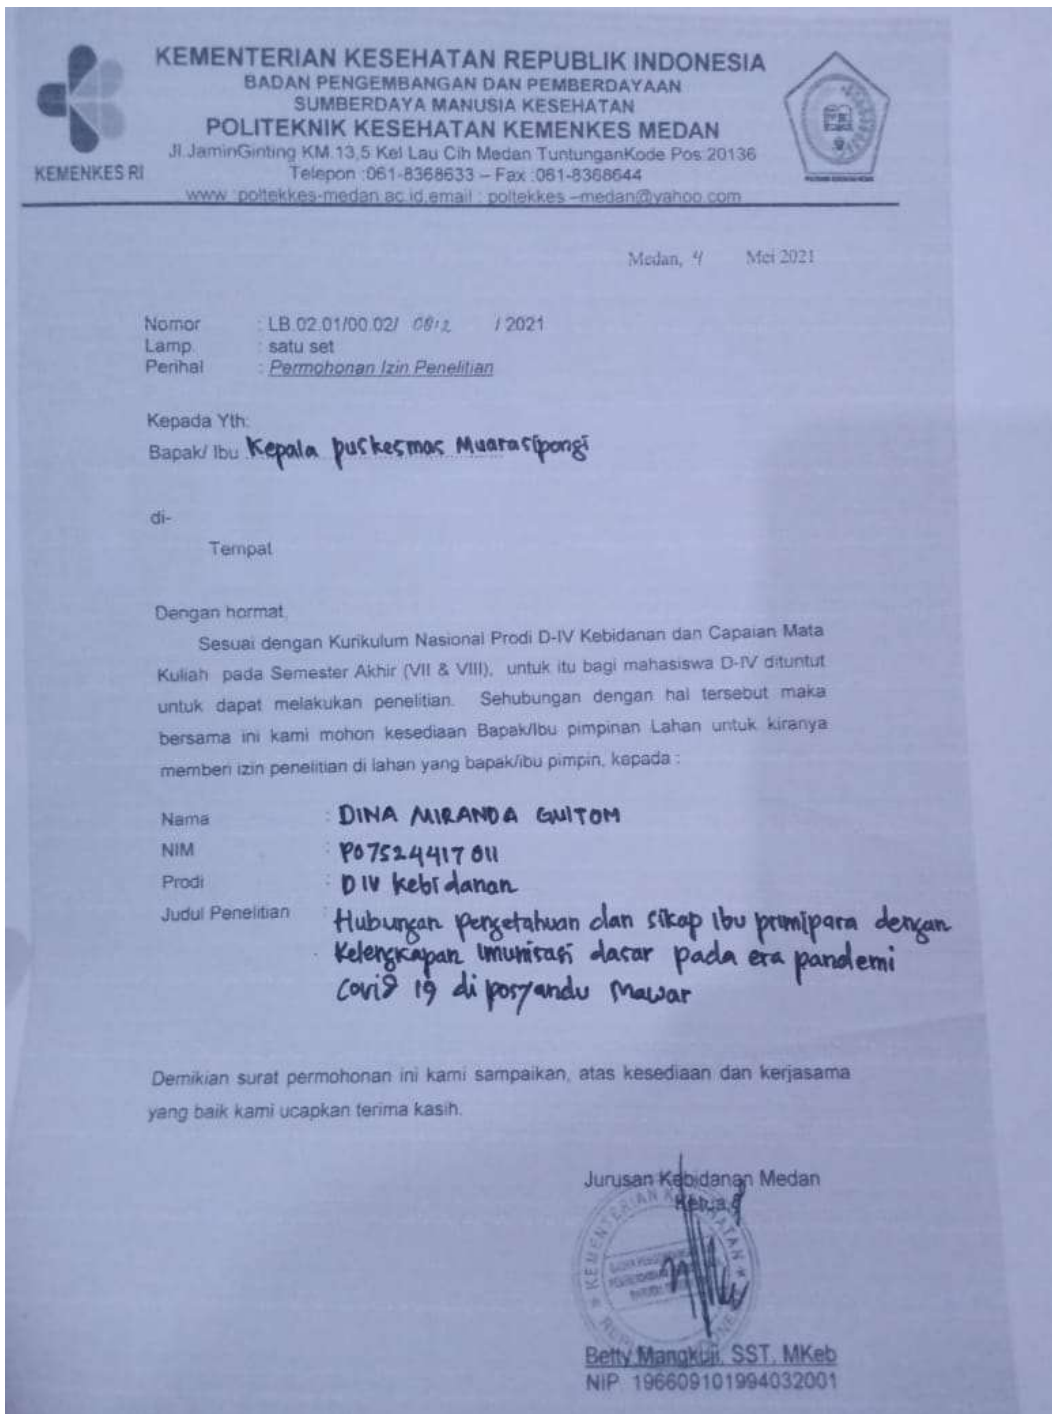 KEMENTERIAN KESEHATAN REPUBLIK INDONESIA
BADAN PENGEMBANGAN DAN PEMBERDAYAAN
SUMBERDAYA MANUSIA KESEHATAN
POLITEKNIK KESEHATAN KEMENKES MEDAN
Jl.JaminGinting KM.13,5 Kel Lau Cih Medan TuntunganKode Pos:20136
KEMENKES RI
Telepon :061-8368633 – Fax :061-8368644
www :poltekkes-medan.ac.id,email : poltekkes –medan@yahoo.com
Medan, 4 Mei 2021
Nomor : LB.02.01/00.02/ /2021
Lamp. : satu set
Perihal : Permohonan Izin Penelitian
Kepada Yth:
Bapak/ Ibu Kepala puskesmas Muarasipongi
di-
Tempat
Dengan hormat,
Sesuai dengan Kurikulum Nasional Prodi D-IV Kebidanan dan Capaian Mata
Kuliah pada Semester Akhir (VII & VIII), untuk itu bagi mahasiswa D-IV dituntut
untuk dapat melakukan penelitian. Sehubungan dengan hal tersebut maka
bersama ini kami mohon kesediaan Bapak/Ibu pimpinan Lahan untuk kiranya
memberi izin penelitian di lahan yang bapak/ibu pimpin, kepada :
Nama : DINA MIRANDA GUITOM
NIM : P07524417011
Prodi : DIV Kebidanan
Judul Penelitian : Hubungan pengetahuan dan sikap ibu primipara dengan
Kelengkapan imunisasi dasar pada era pandemi
Covid 19 di posyandu Mawar
Demikian surat permohonan ini kami sampaikan, atas kesediaan dan kerjasama
yang baik kami ucapkan terima kasih.
Jurusan Kebidanan Medan
Ketua,
KEMENTERIAN KESEHATAN
Betty Mangkuji, SST, MKeb
NIP. 196609101994032001